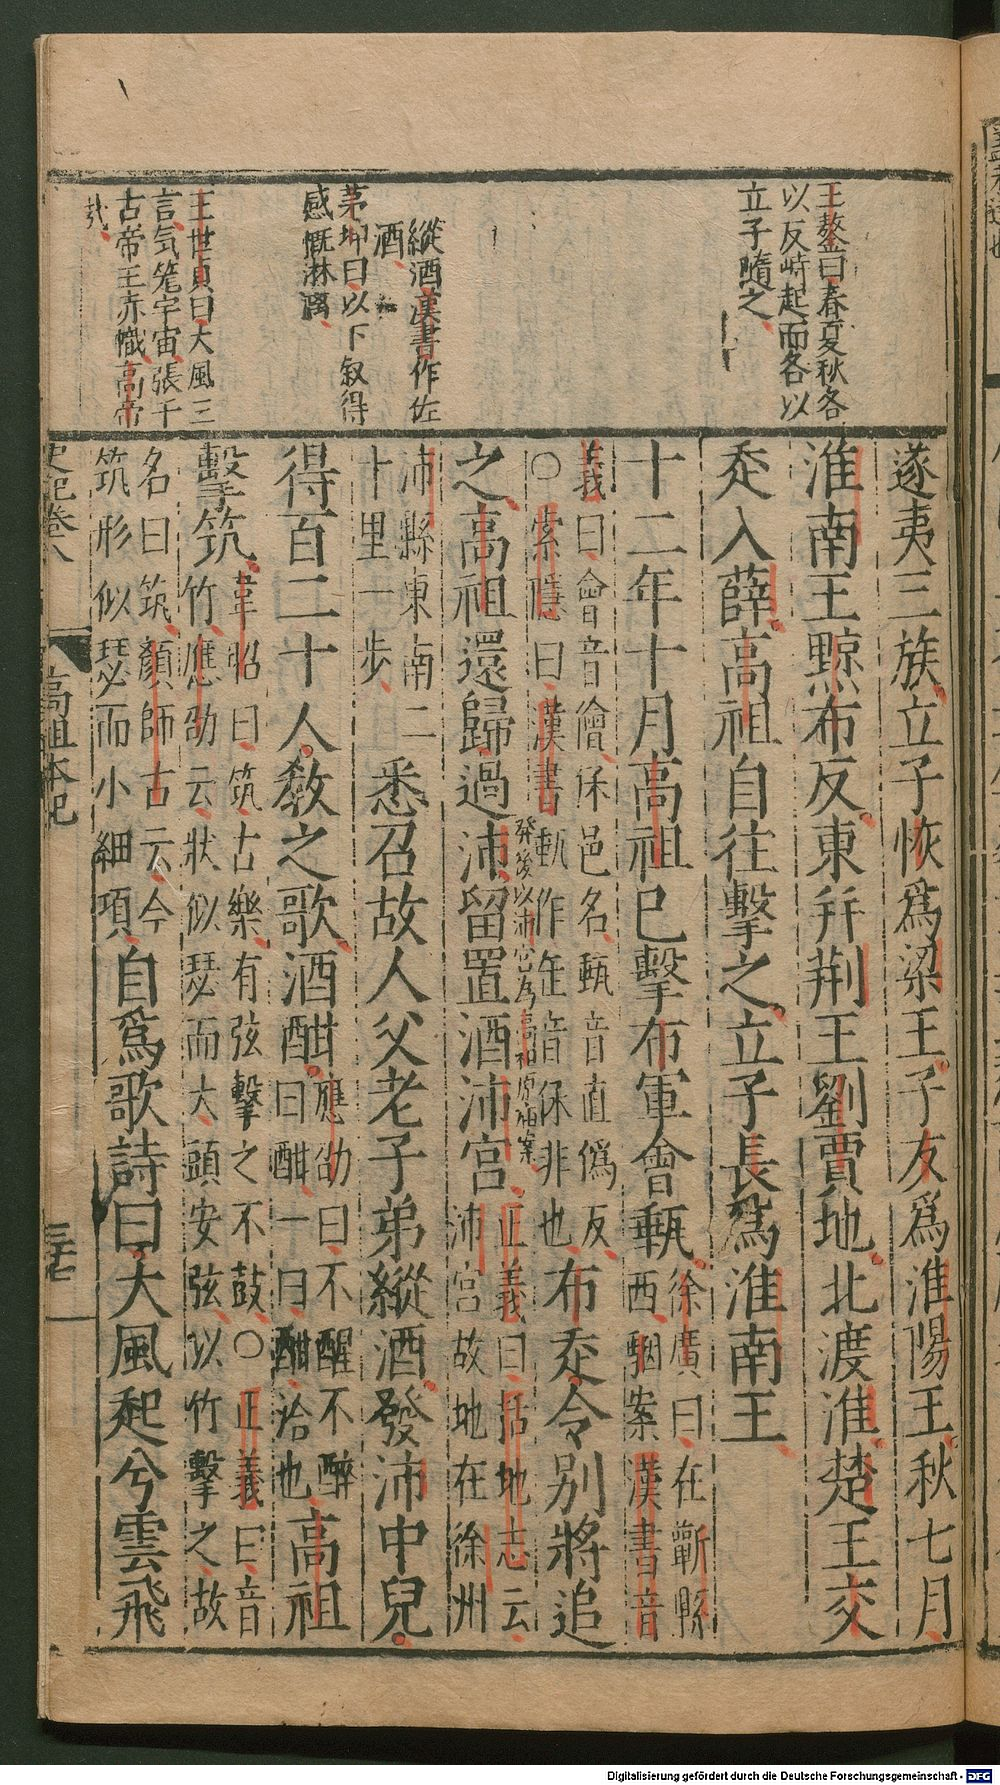 王鏊曰春夏秋各
以反峙起而各以
立子隨之
縱酒漢書作佐
酒
茅坤曰以下敘得
感慨淋漓
王世貞曰大風三
言気籠宇宙張千
古帝王赤幟高帝
哉
遂夷三族立子恢爲梁王子友爲淮陽王秋七月
淮南王黥布反東并荆王劉賈地北渡淮楚王交
走入薛高祖自往擊之立子長爲淮南王
十二年十月高祖已擊布軍會甀
徐廣曰在蘄縣
西駰案漢書音
義曰會音儈保邑名甀音直僞反
○索隱曰漢書甀作缶音保非也
布走令别將追
之高祖還歸過沛留置酒沛宮
發後以沛宮爲高祖原庙案
正義曰括地志云
沛宮故地在徐州
沛縣東南二
十里一步
悉召故人父老子弟縱酒發沛中兒
得百二十人教之歌酒酣
應劭曰不醒不醉
曰酣一曰酣洽也
高祖
擊筑
韋昭曰筑古樂有弦擊之不鼓○正義曰音
竹應劭云狀似瑟而大頭安弦以竹擊之故
名曰筑顏師古云今
筑形似瑟而小細項
自爲歌詩曰大風起兮雲飛
史記卷八
高祖本紀
三七
Digitalisierung gefördert durch die Deutsche Forschungsgemeinschaft - DFG